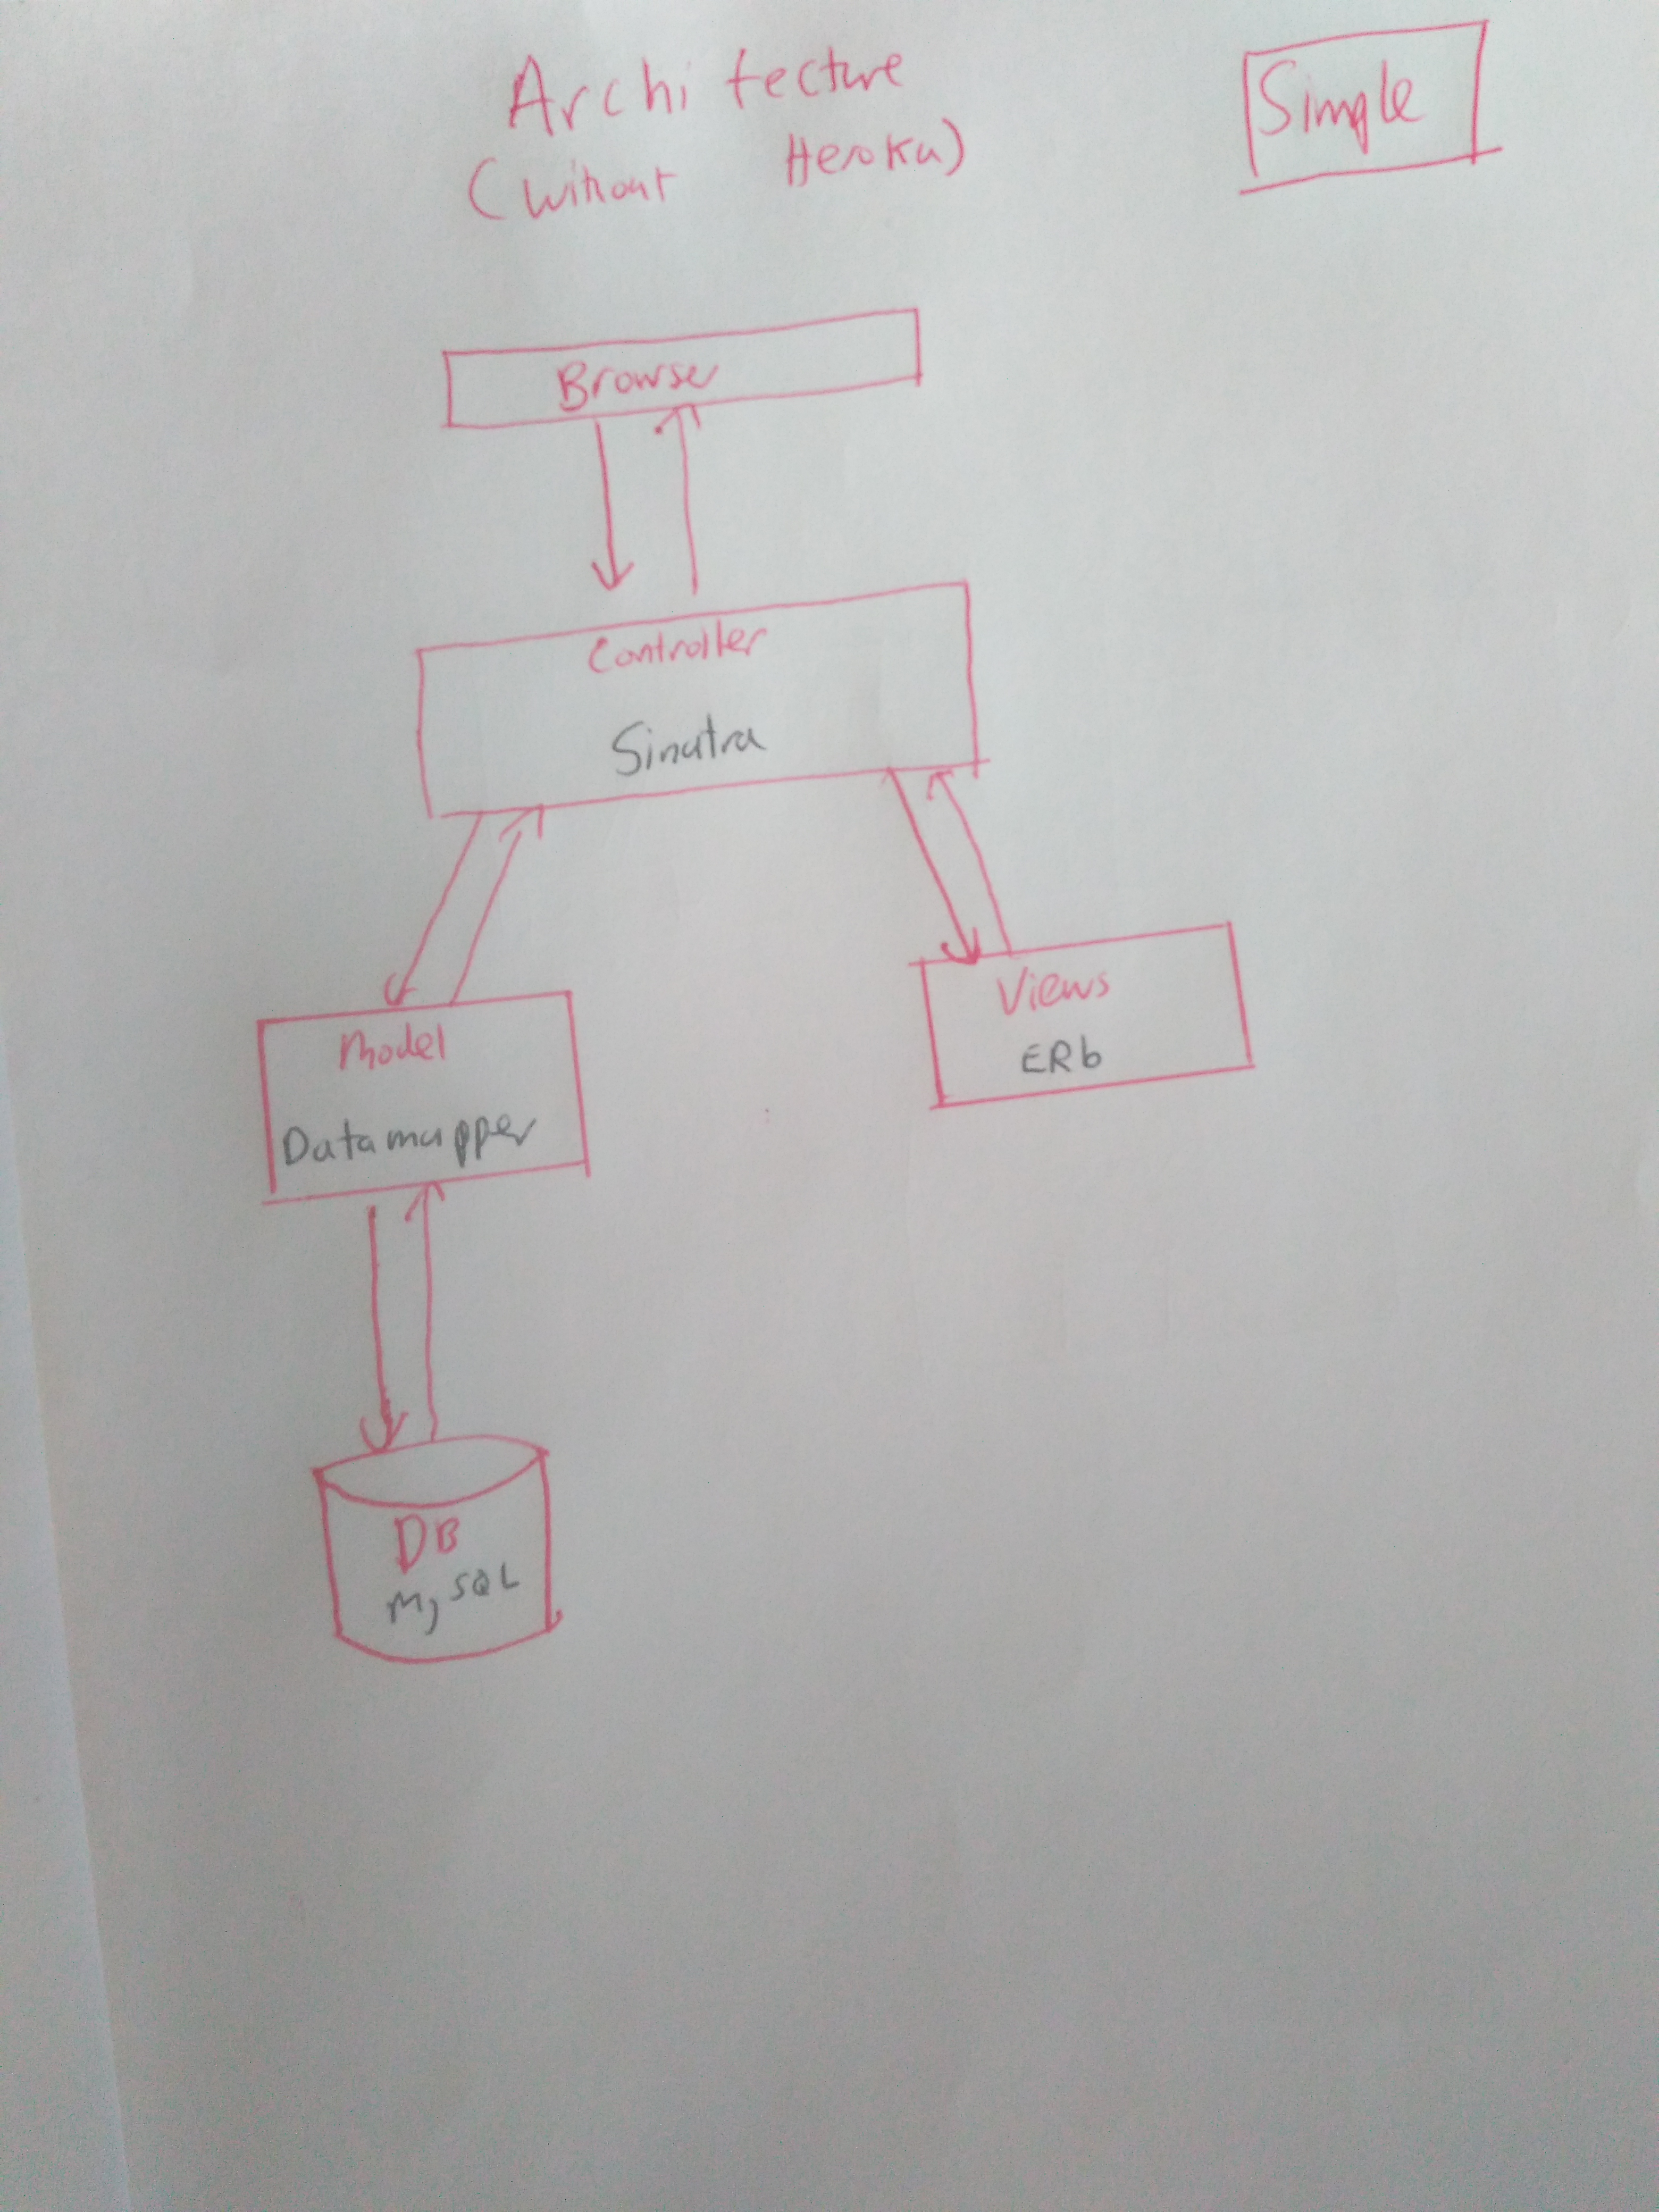 Architecture
(without Heroku)
Simple
Browser
Controller
Sinatra
Model
Datamapper
Views
ERb
DB
MySQL